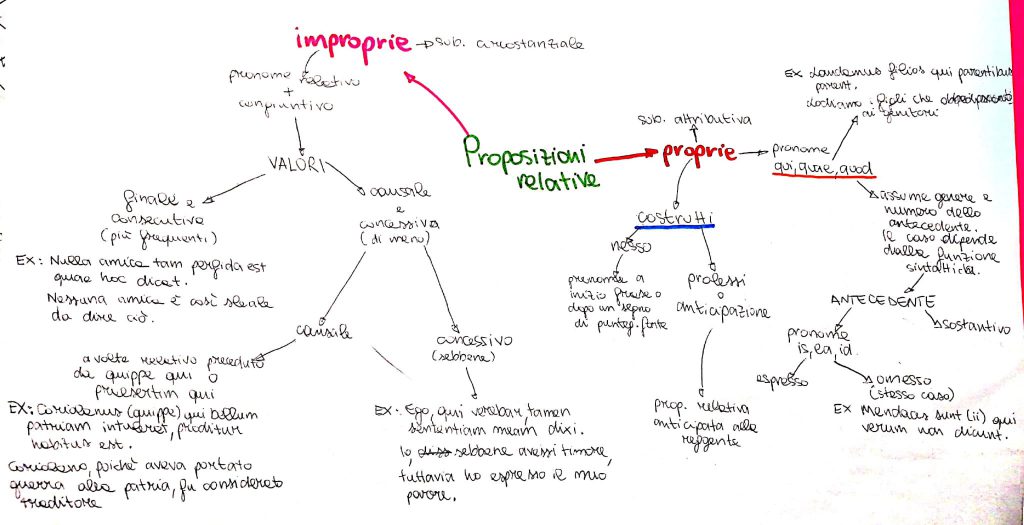 improprie → sub. circostanziale
pronome relativo
+
congiuntivo
VALORI
finale e
consecutive
(più frequenti)
EX: Nulla amica tam perfida est
quae hoc dicat.
Nessuna amica è così sleale
da dire ciò.
causale
e
concessiva
(di meno)
causale
a volte relativo preceduto
da quippe qui o
praesertim qui
EX: Coriolanus (quippe) qui bellum
patriam intulerat, proditur
habitus est.
Coriolano, poichè aveva portato
guerra alla patria, fu considerato
traditore
concessivo
(sebbene)
EX: Ego, qui verebar, tamen
sententiam meam dixi.
Io, sebbene avessi timore,
tuttavia ho espresso il mio
parere.
Proposizioni
relative
sub. attributiva
proprie
costrutti
nesso
pronome a
inizio frase o
dopo un segno
di punteg. forte
prolessi
o
anticipazione
prop. relativa
anticipata alla
reggente
pronome
qui, quae, quod
EX Laudamus filios qui parentibus
parent.
lodiamo i figli che
ai genitori
assume genere e
numero dello
antecedente.
Il caso dipende
dalla funzione
sintattica.
ANTECEDENTE
sostantivo
pronome
is, ea, id.
espresso
omesso
(stesso caso)
EX Mendaces sunt (ii) qui
verum non dicunt.